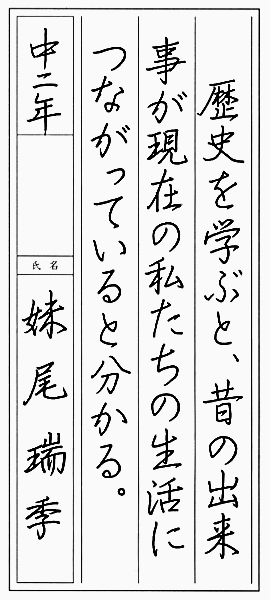 歴史を学ぶと、昔の出来
事が現在の私たちの生活に
つながっていると分かる。
中二年
氏名
妹尾瑞季